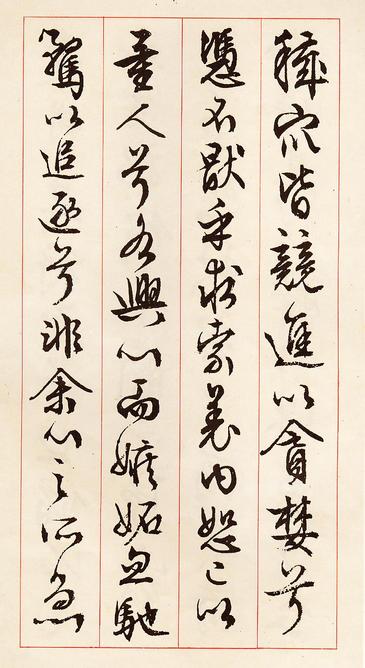 穢眾皆競進以貪婪兮
憑不猒乎求索羌内恕己以
量人兮各興心而嫉妬忽馳
騖以追逐兮非余心之所急